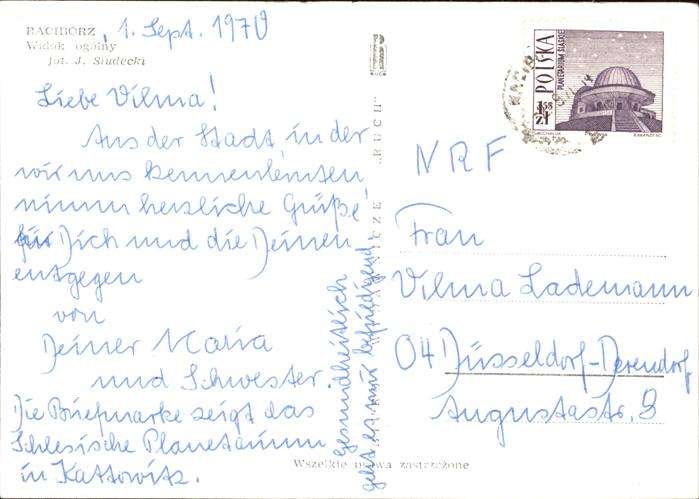 RACIBÓRZ, 1. Sept. 1970
Widok ogólny
fot. J. Siudecki
Liebe Vilma!
Aus der Stadt, in der
wir uns kennenlernten
nimm herzliche Grüße
für Dich und die Deinen
entgegen
von
Deiner Maria
und Schwester.
Die Briefmarke zeigt das
Schlesische Planetarium
in Kattowitz.
Gesundheitlich
geht es mir befriedigend.
"RUCH"
Wszelkie prawa zastrzeżone
POLSKA
PLANETARIUM ŚLĄSKIE
1,55
zł
NRF
Frau
Vilma Lademann
04 Düsseldorf-Derendorf
Augustastr. 8